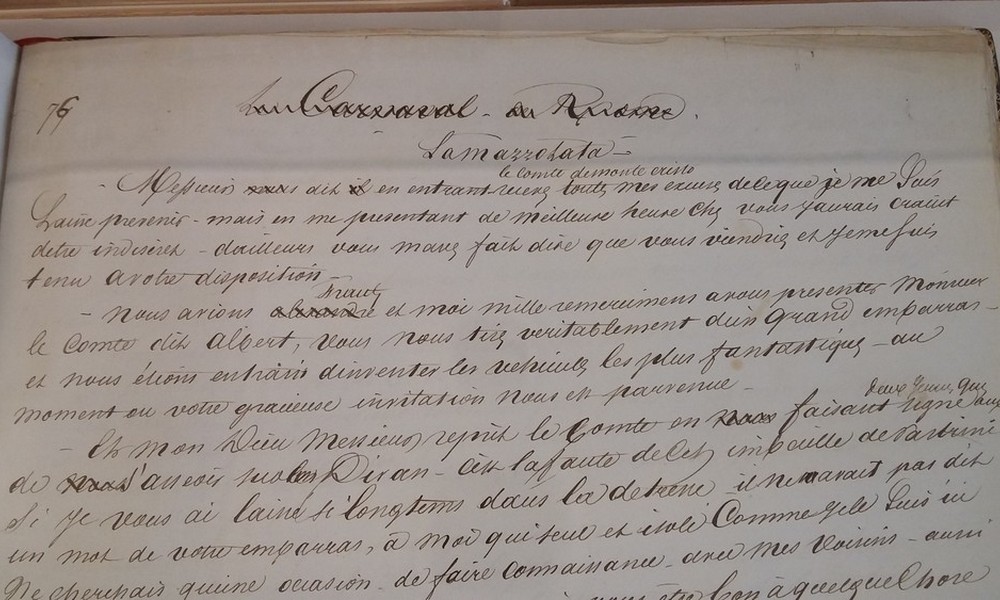 76
Le Carnaval de Rome.
La mazzolata –
le comte de monte cristo
– Messieurs nous dit il en entrant recevez toutes mes excuses de ce que je me suis
laissé prevenir – mais en me presentant de meilleure heure chez vous j'aurais craint
detre indiscret – dailleurs vous mavez fait dire que vous viendriez et je me suis
tenu a votre disposition –
Frantz
– Nous avions alexandre et moi mille remercimens a vous presenter Monsieur
le Comte dit Albert, vous nous tirez veritablement d'un grand embarras –
et nous étions entrain dinventer les vehicules les plus fantastiques – au
moment ou votre gracieuse invitation nous est parvenue –
deux jeunes gens
– Eh mon Dieu Messieurs reprit le Comte en nous faisant signe aux
de nous s'asseoir sur les Divan – cest la faute de cet imbecille de Pastrini
si je vous ai laissé si longtems dans la detresse il ne mavait pas dit
un mot de votre embarras, à moi qui seul et isolé comme je le suis ici
ne cherchais quune occasion de faire connaissance avec mes voisins – aussi
bon à quelque chose